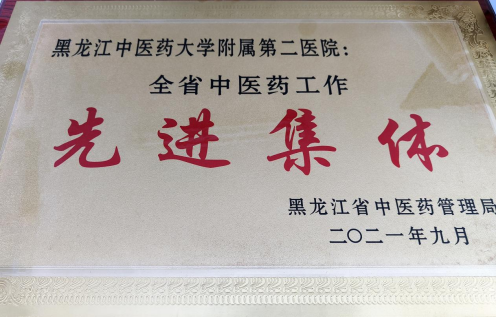 黑龙江中医药大学附属第二医院：
全省中医药工作
先进集体
黑龙江省中医药管理局
二〇二一年九月